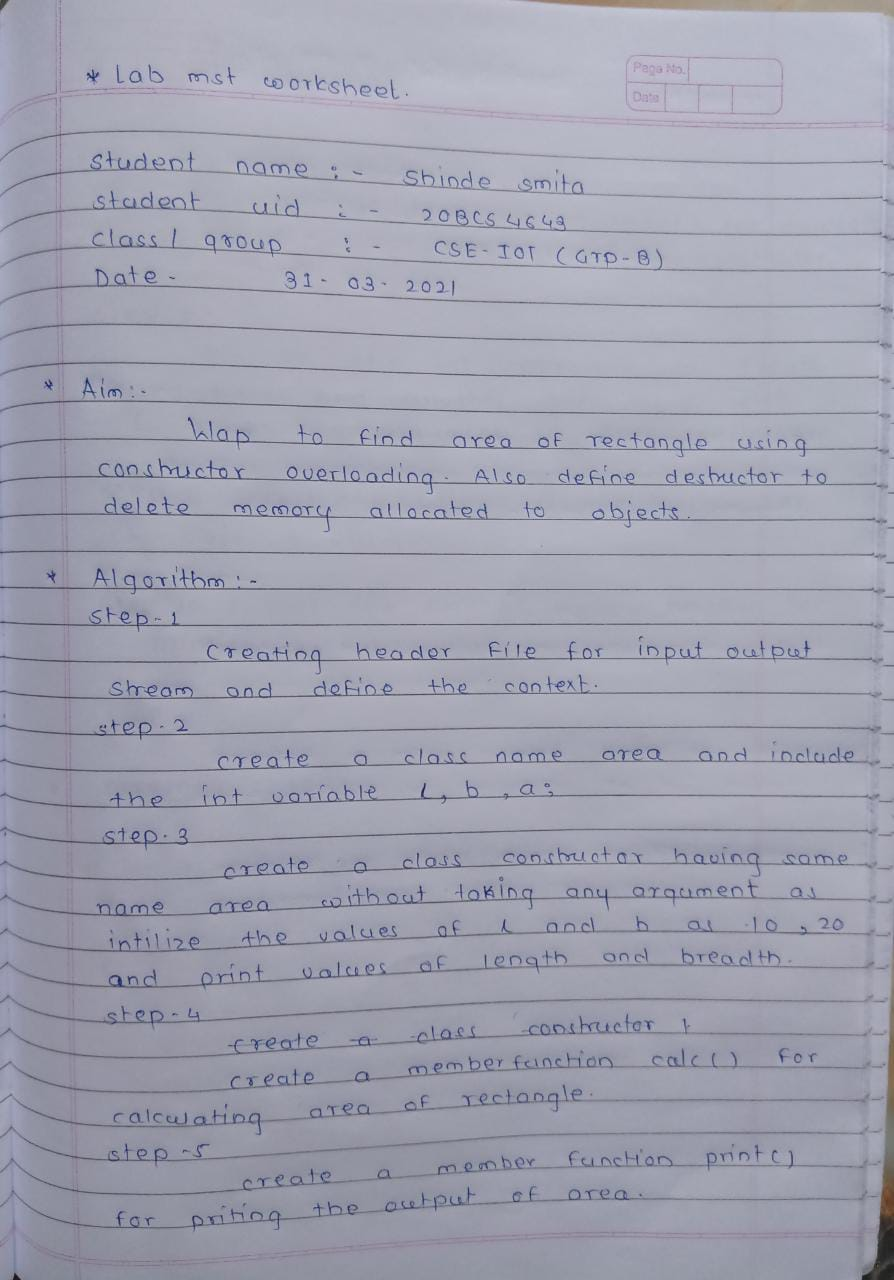 * Lab mst worksheet.
Page No.
Date
student name :- Shinde smita
student uid :- 20BCS4649
class / group :- CSE-IOT (Grp-B)
Date - 31-03-2021
* Aim :-
Wap to find area of rectangle using
constructor overloading. Also define destructor to
delete memory allocated to objects.
* Algorithm :-
step-1
Creating header File for input output
stream and define the context.
step-2
create a class name area and include
the int variable l, b, a;
step-3
create a class constructor having same
name area without taking any argument as
intilize the values of l and b as 10, 20
and print values of length and breadth.
step-4
create a class constructor
create a member function calc() for
calculating area of rectangle.
step-5
create a member function print()
for priting the output of area.